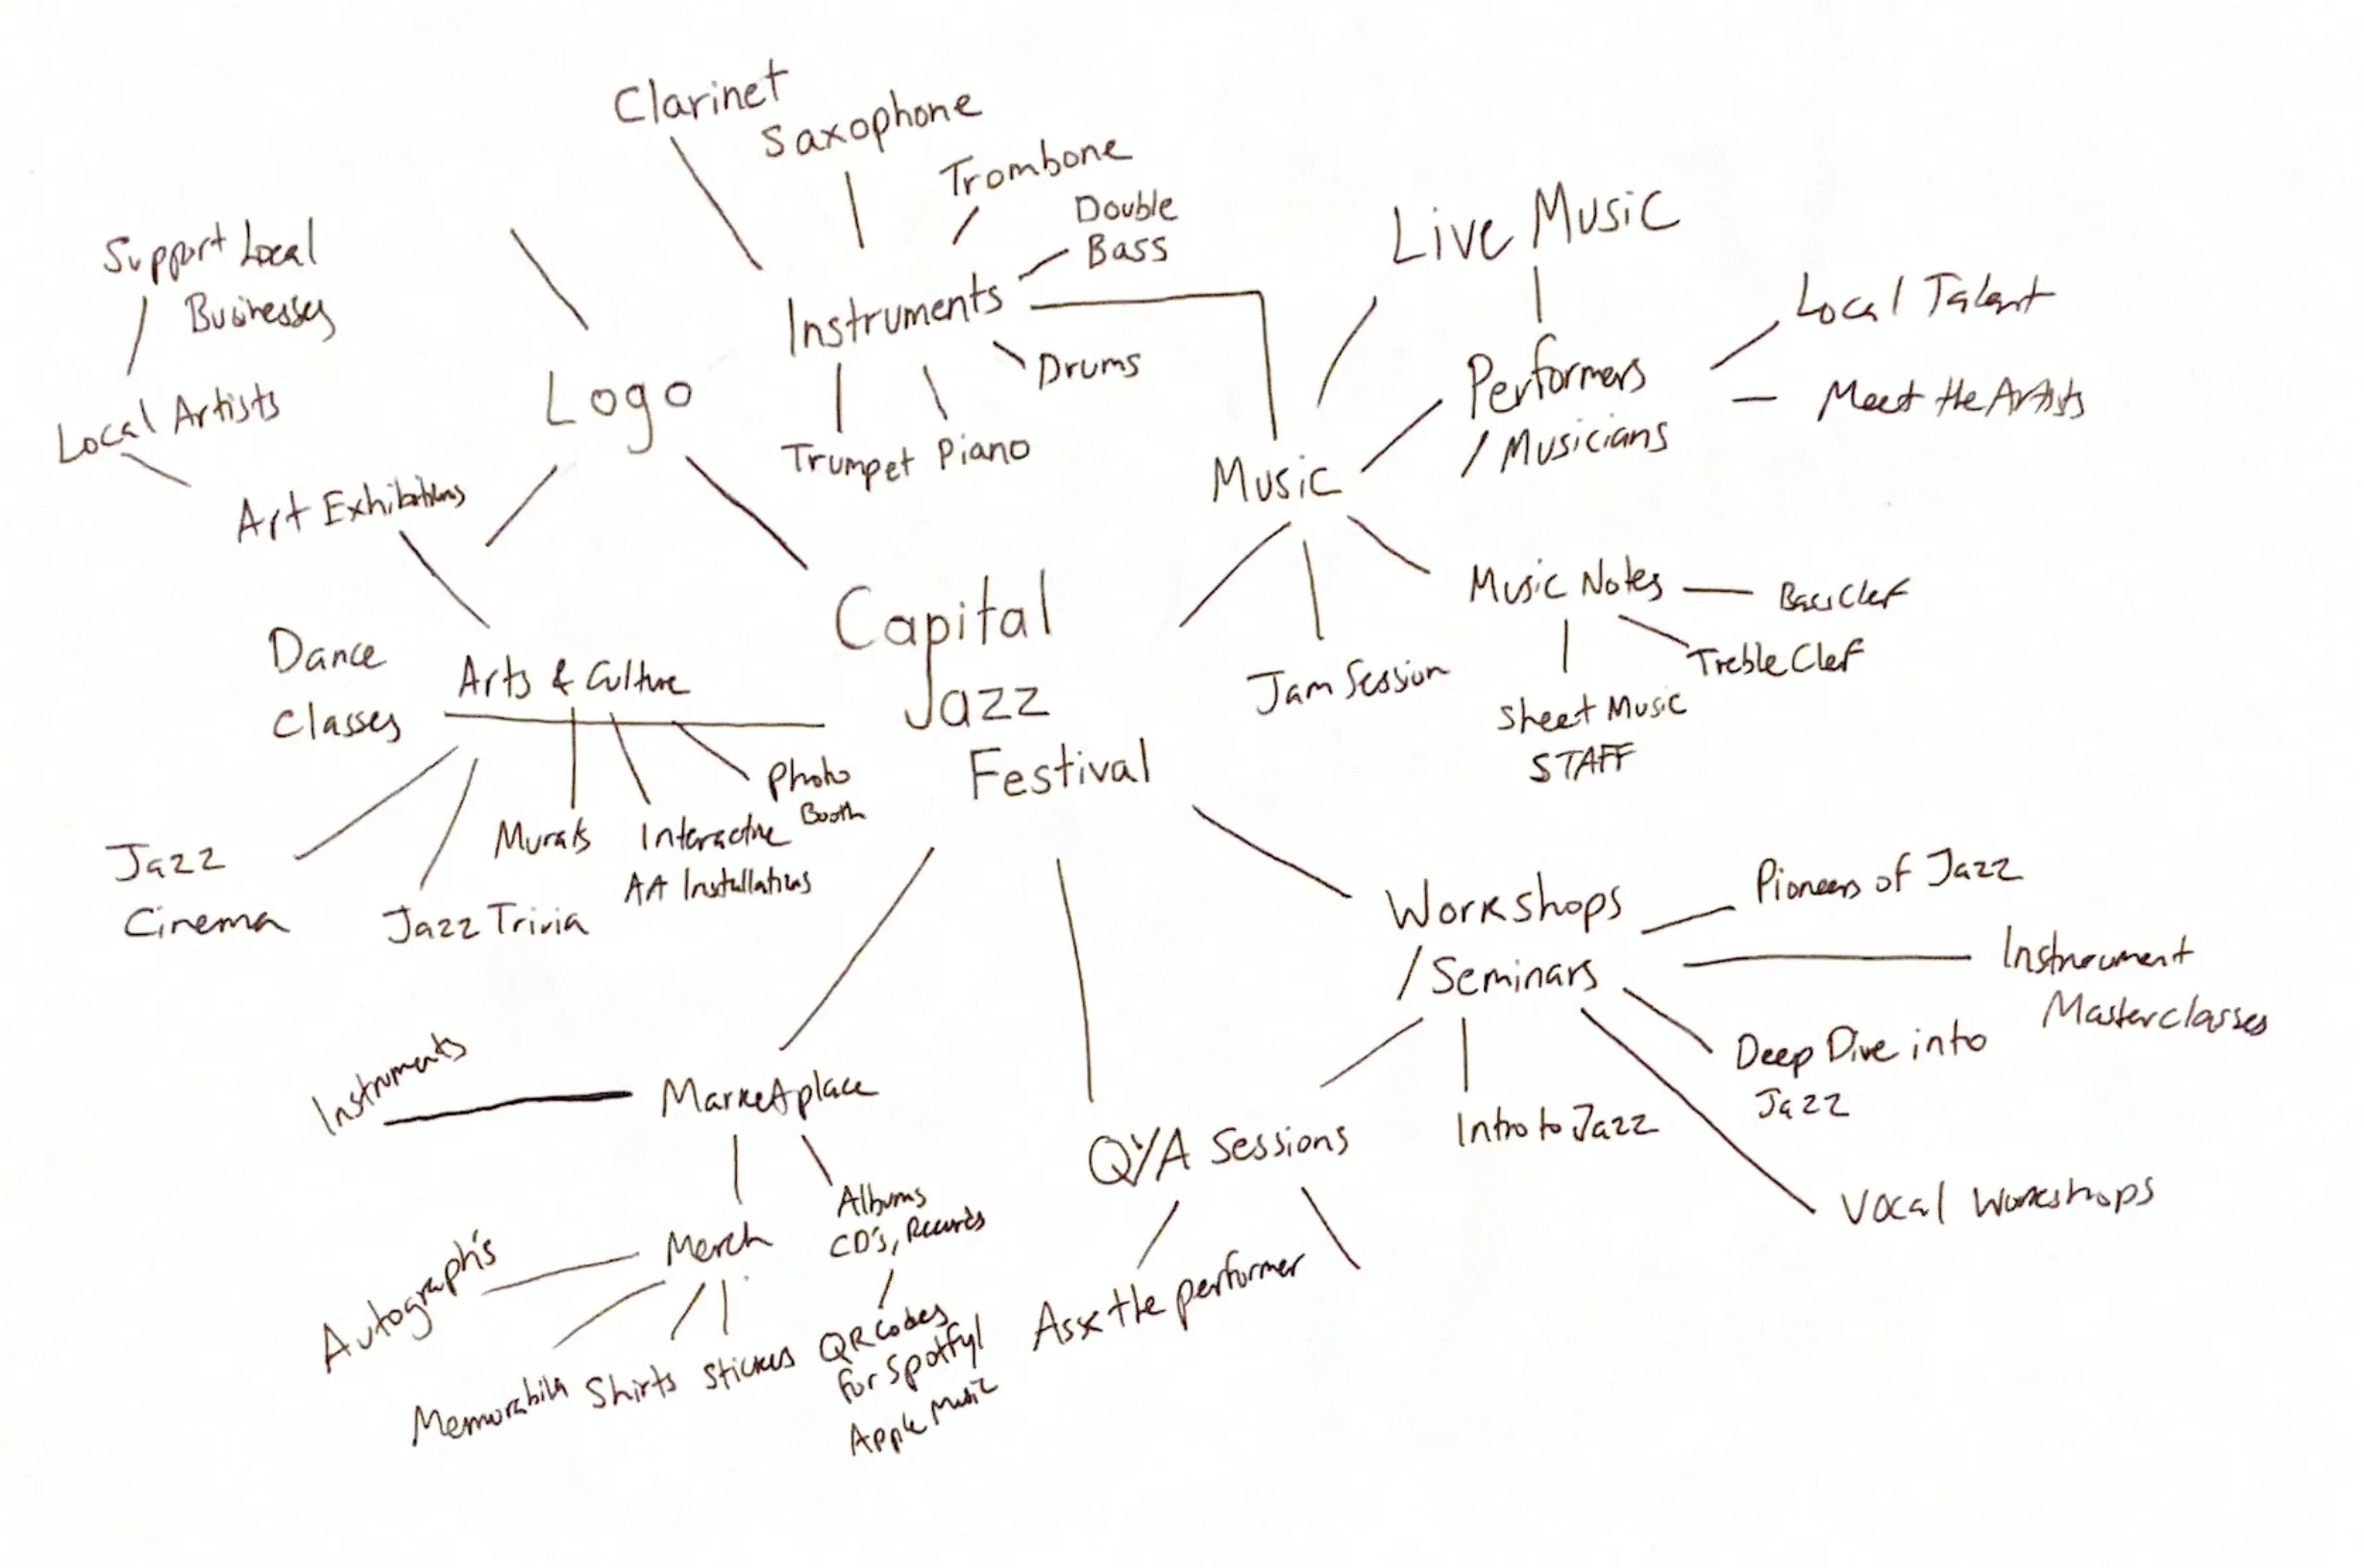 Clarinet
Saxophone
Trombone
Double
Bass
Instruments
Drums
Trumpet
Piano
Live Music
Performers
/ Musicians
Local Talent
Meet the Artists
Music
Music Notes
Bass Clef
Treble Clef
Sheet Music
STAFF
Jam Session
Support Local
Businesses
Local Artists
Art Exhibitions
Logo
Capital
Jazz
Festival
Dance
Classes
Arts & Culture
Photo
Booth
Murals
Interactive
AA Installations
Jazz
Cinema
Jazz Trivia
Workshops
/ Seminars
Pioneers of Jazz
Instrument
Masterclasses
Deep Dive into
Jazz
Intro to Jazz
Vocal Workshops
Q/A Sessions
Ask the performer
Instruments
Marketplace
Albums
CD's, Records
Merch
Autograph's
Memorabilia
Shirts
Stickers
QR Codes
for Spotify/
Apple Music